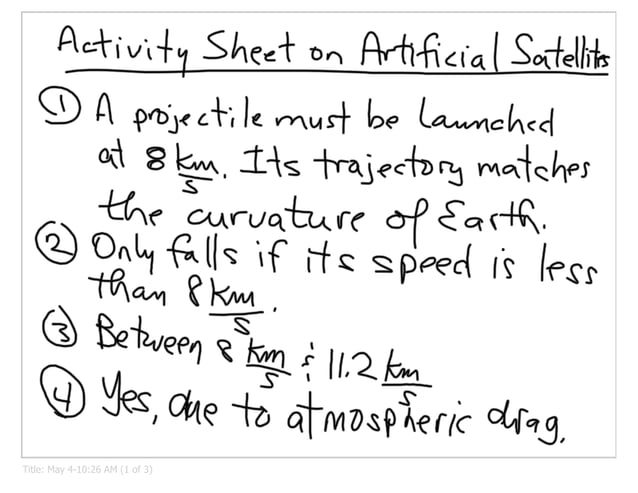 Activity Sheet on Artificial Satellites
① A projectile must be launched
at 8 km/s. Its trajectory matches
the curvature of Earth.
② Only falls if its speed is less
than 8 km/s.
③ Between 8 km/s & 11.2 km/s
④ Yes, due to atmospheric drag.
Title: May 4-10:26 AM (1 of 3)